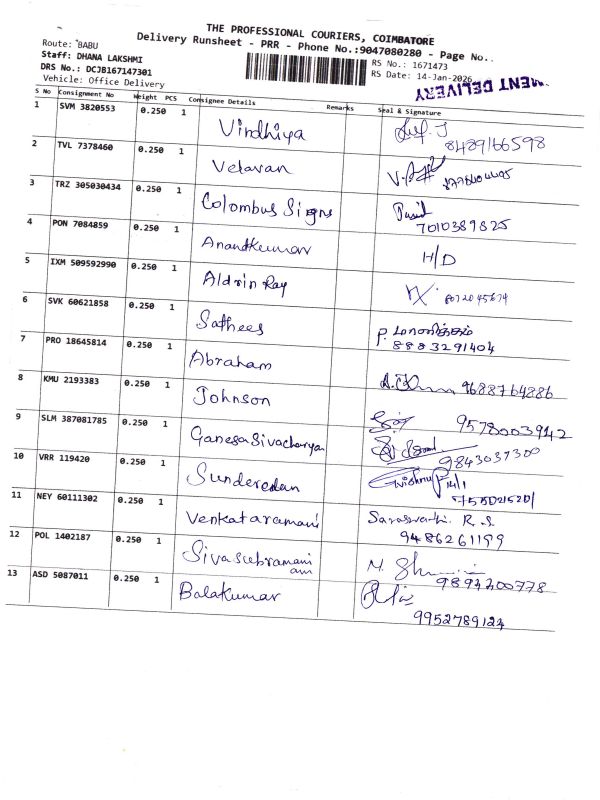 THE PROFESSIONAL COURIERS, COIMBATORE
Delivery Runsheet - PRR - Phone No.:9047080280 - Page No..
Route: BABU
Staff: DHANA LAKSHMI
DRS No.: DCJB167147301
Vehicle: Office Delivery
RS No.: 1671473
RS Date: 14-Jan-2026
MENT DELIVERY
S No Consignment No Weight PCS Consignee Details Remarks Seal & Signature
1 SVM 3820553 0.250 1 Virdhiya 8489166598
2 TVL 7378460 0.250 1 Velavan
3 TRZ 305030434 0.250 1 Colombus Signs 7010389825
4 PON 7084859 0.250 1 Anandkumar H/D
5 IXM 509592990 0.250 1 Aldrin Ray
6 SVK 60621858 0.250 1 Sathees 8883291404
7 PRO 18645814 0.250 1 Abraham 9688764886
8 KMU 2193383 0.250 1 Johnson 9578003942
9 SLM 387081785 0.250 1 Ganesa Sivacharya 9843037300
10 VRR 119420 0.250 1 Sunderedan 14/1
11 NEY 60111302 0.250 1 Venkataramani Saraswathi. R. S.
9486261199
12 POL 1402187 0.250 1 Sivasubramani
ani
13 ASD 5087011 0.250 1 Balakumar
9952789124